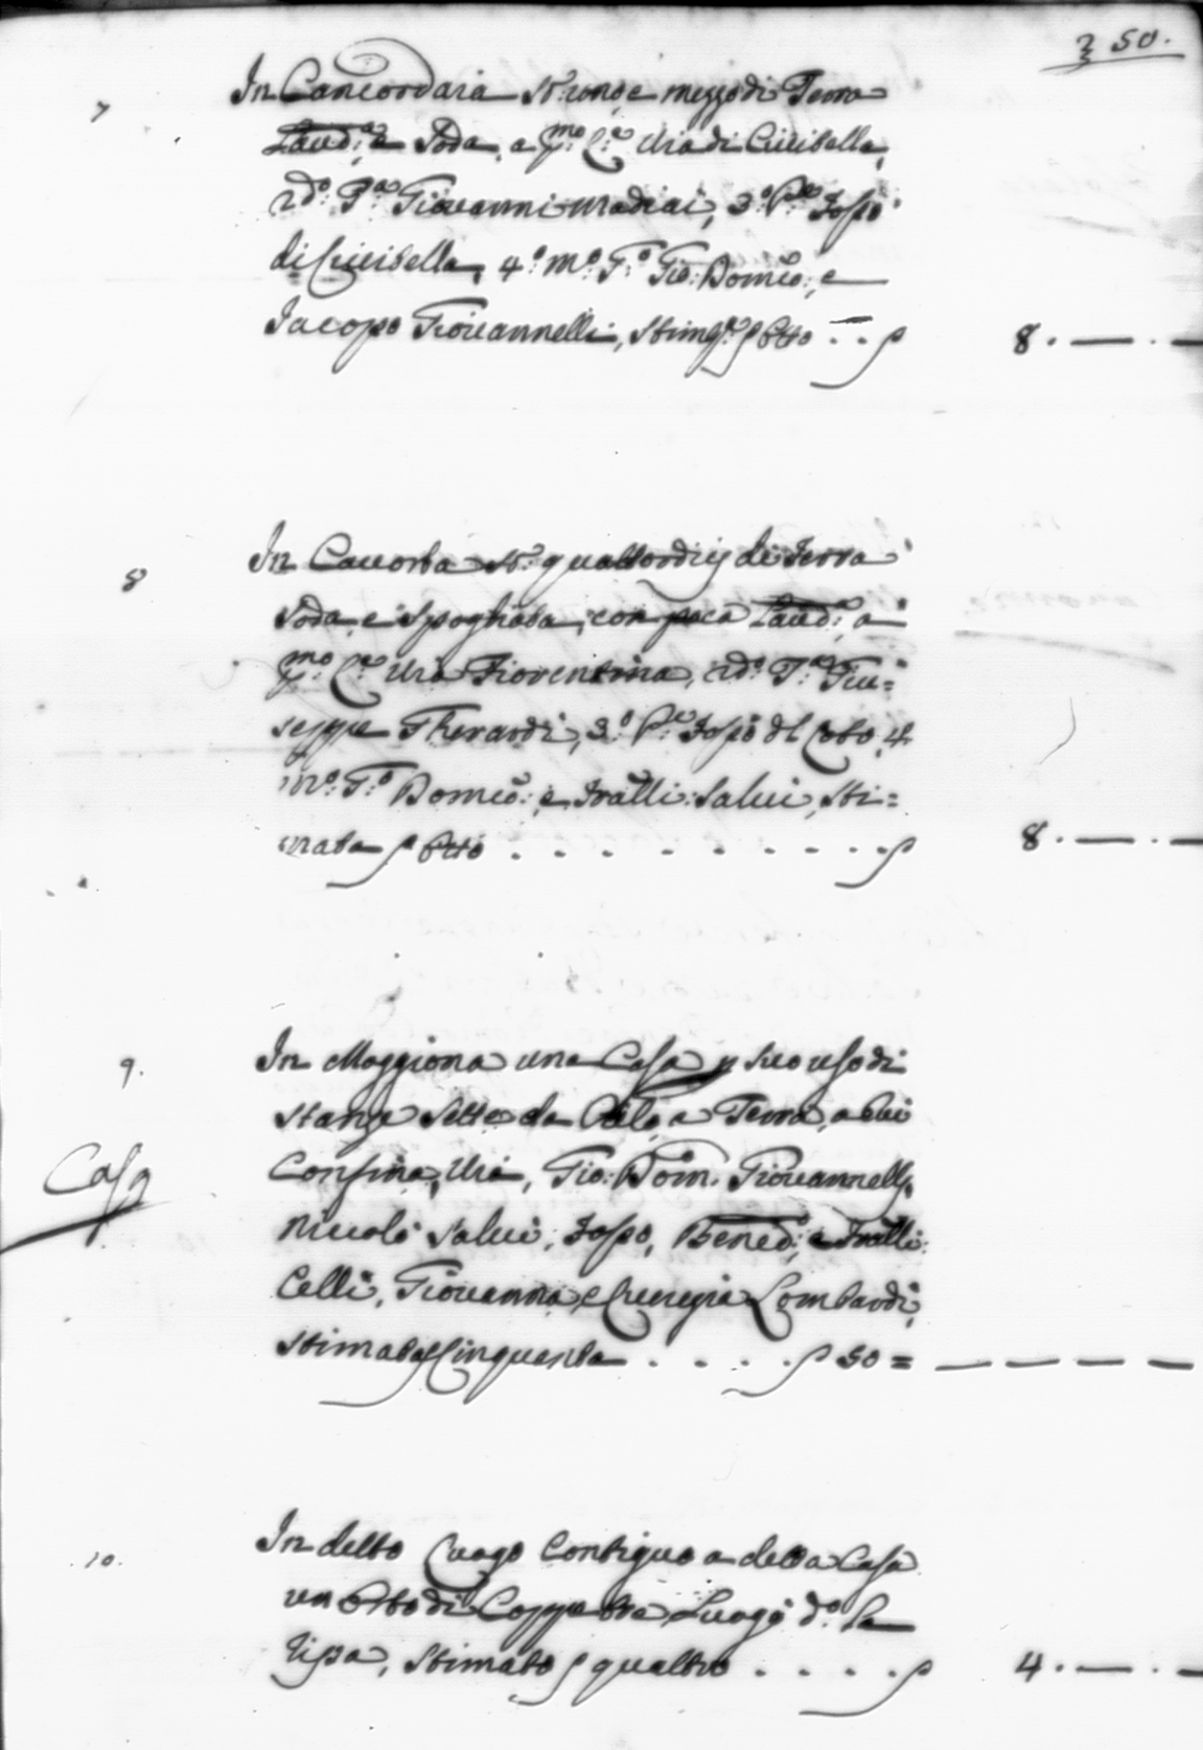 50.
7
In Cancordaia st: uno, e mezzo di Terra
Laud:ª e Soda, a p:mo C:ª Via di Civibella,
2do: T:ª Giovanni Madiai, 3:º P:te Jofo
di Civibella, 4:º M:º T:º Gio: Domco:, e
Jacopo Giovannelli, Stim: otto . . 8. — . —
8
In Cavorba st: quattordici di Terra
Soda, e Spogliata, con poca Laud:, a
p:mo C:ª Via Fiorentina, 2do: T:ª Giu=
seppe Gherardi, 3:º P:te Jofo dl Coto, 4
M:º T:º Domco: e Fratlli: Salvi, Sti=
mata otto . . . . . . . . . 8. — . —
9.
Casa
In Moggiona una Casa p suo uso di
stanze sette da Cielo a Terra, a cui
Confina, Via, Gio: Dom. Giovannelli,
Niccolò Salvi, Jofo, Bened:, e Fratlli:
Celli, Giovanna, e Lucrezia Lombardi,
Stimata Cinquanta . . . . 50 = — — — —
10.
In detto Luogo Contiguo a detta Casa
un Orto di Coppe tre Luogo do: la
Ripa, Stimato quattro . . . . 4. — . —